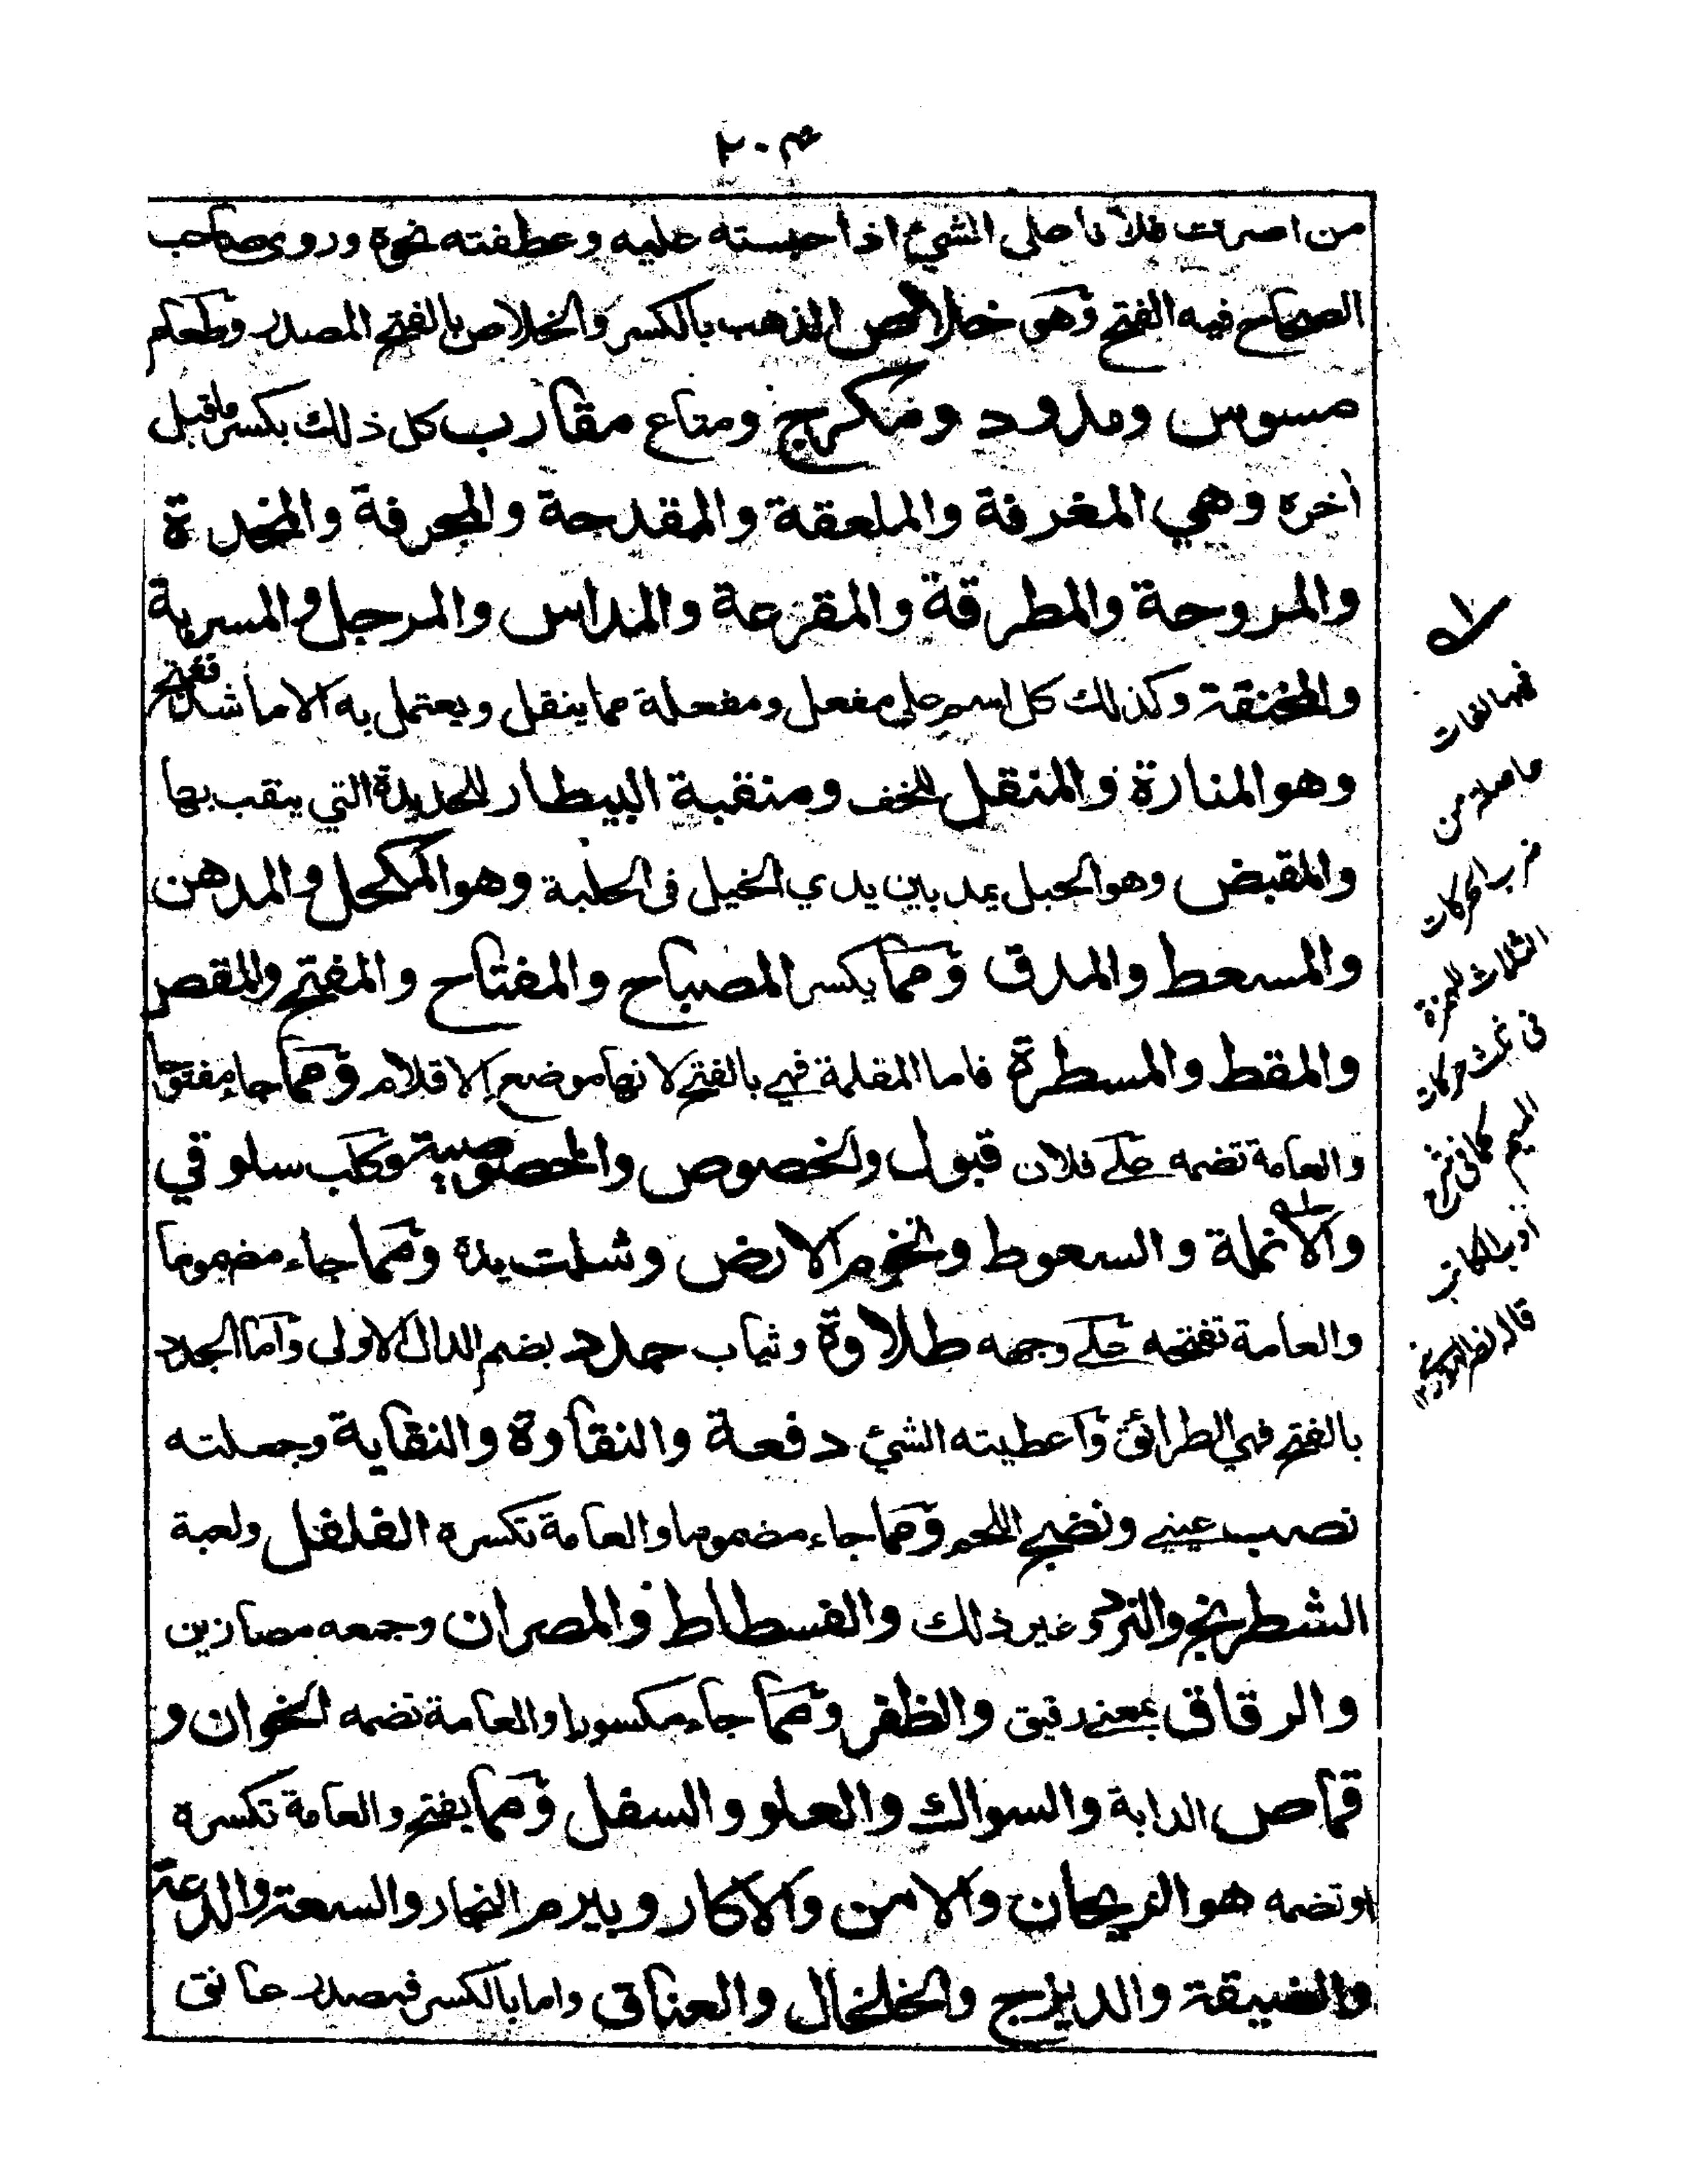 ٢٠٣
من اصرت فلانا على الشيء اذا حبسته عليه وعطفته نحوه وروى صاحب
الصحاح فيه الفتح وهو خلاص الذهب بالكسر والخلاص بالفتح المصدر وطعام
مسوس ومدود ومكرج ومتاع مقارب كل ذلك بكسر ماقبل
اخره وهي المغرفة والملعقة والمقدحة والمجرفة والمخدة
والمروحة والمطرقة والمقرعة والمداس والمرجل والمسربة
والمخنقة وكذلك كل اسم على مفعل ومفعلة مما ينقل ويعتمل به الا ما شذ ففتح
وهو المنارة والمنقل للخف ومنقبة البيطار للحديدة التي ينقب بها
والمقبض وهو الحبل يمد بين يدي الخيل في الحلبة وهو المكحل والمدهن
والمسعط والمدق ومما يكسر المصباح والمفتاح والمفتح والمقص
والمقط والمسطرة فاما المقلمة فهي بالفتح لانها موضع الاقلام ومما جاء مفتوحا
والعامة تضمه على فلان قبول والخصوص والخصوصية وكلب سلوقي
والانملة والسعوط وتخوم الارض وشلت يده ومما جاء مضموما
والعامة تفتحه على وجهه طلاوة وثياب جدد بضم الدال الاولى واما الجدد
بالفتح فهي الطرائق واعطيته الشيء دفعة والنقاوة والنقاية وجعلته
نصب عيني ونضج اللحم ومما جاء مضموما والعامة تكسره الفلفل ولعبة
الشطرنج والنرد وغير ذلك والفسطاط والمصران وجمعه مصارين
والرقاق بمعنى رقيق والظفر ومما جاء مكسورا والعامة تضمه الخوان و
قماص الدابة والسواك والعلو والسفل ومما يفتح والعامة تكسره
او تضمه هو الريحان والامن والاكار وبيرم النجار والسعة والدعة
والضيقة والديزج والخلخال والعناق واما بالكسر فمصدر عانق
لا
فيها لغات
حاصلة من
ضرب الحركات
الثلاث للهمزة
في ثلث حركات
الميم كما في شرح
قال نصر